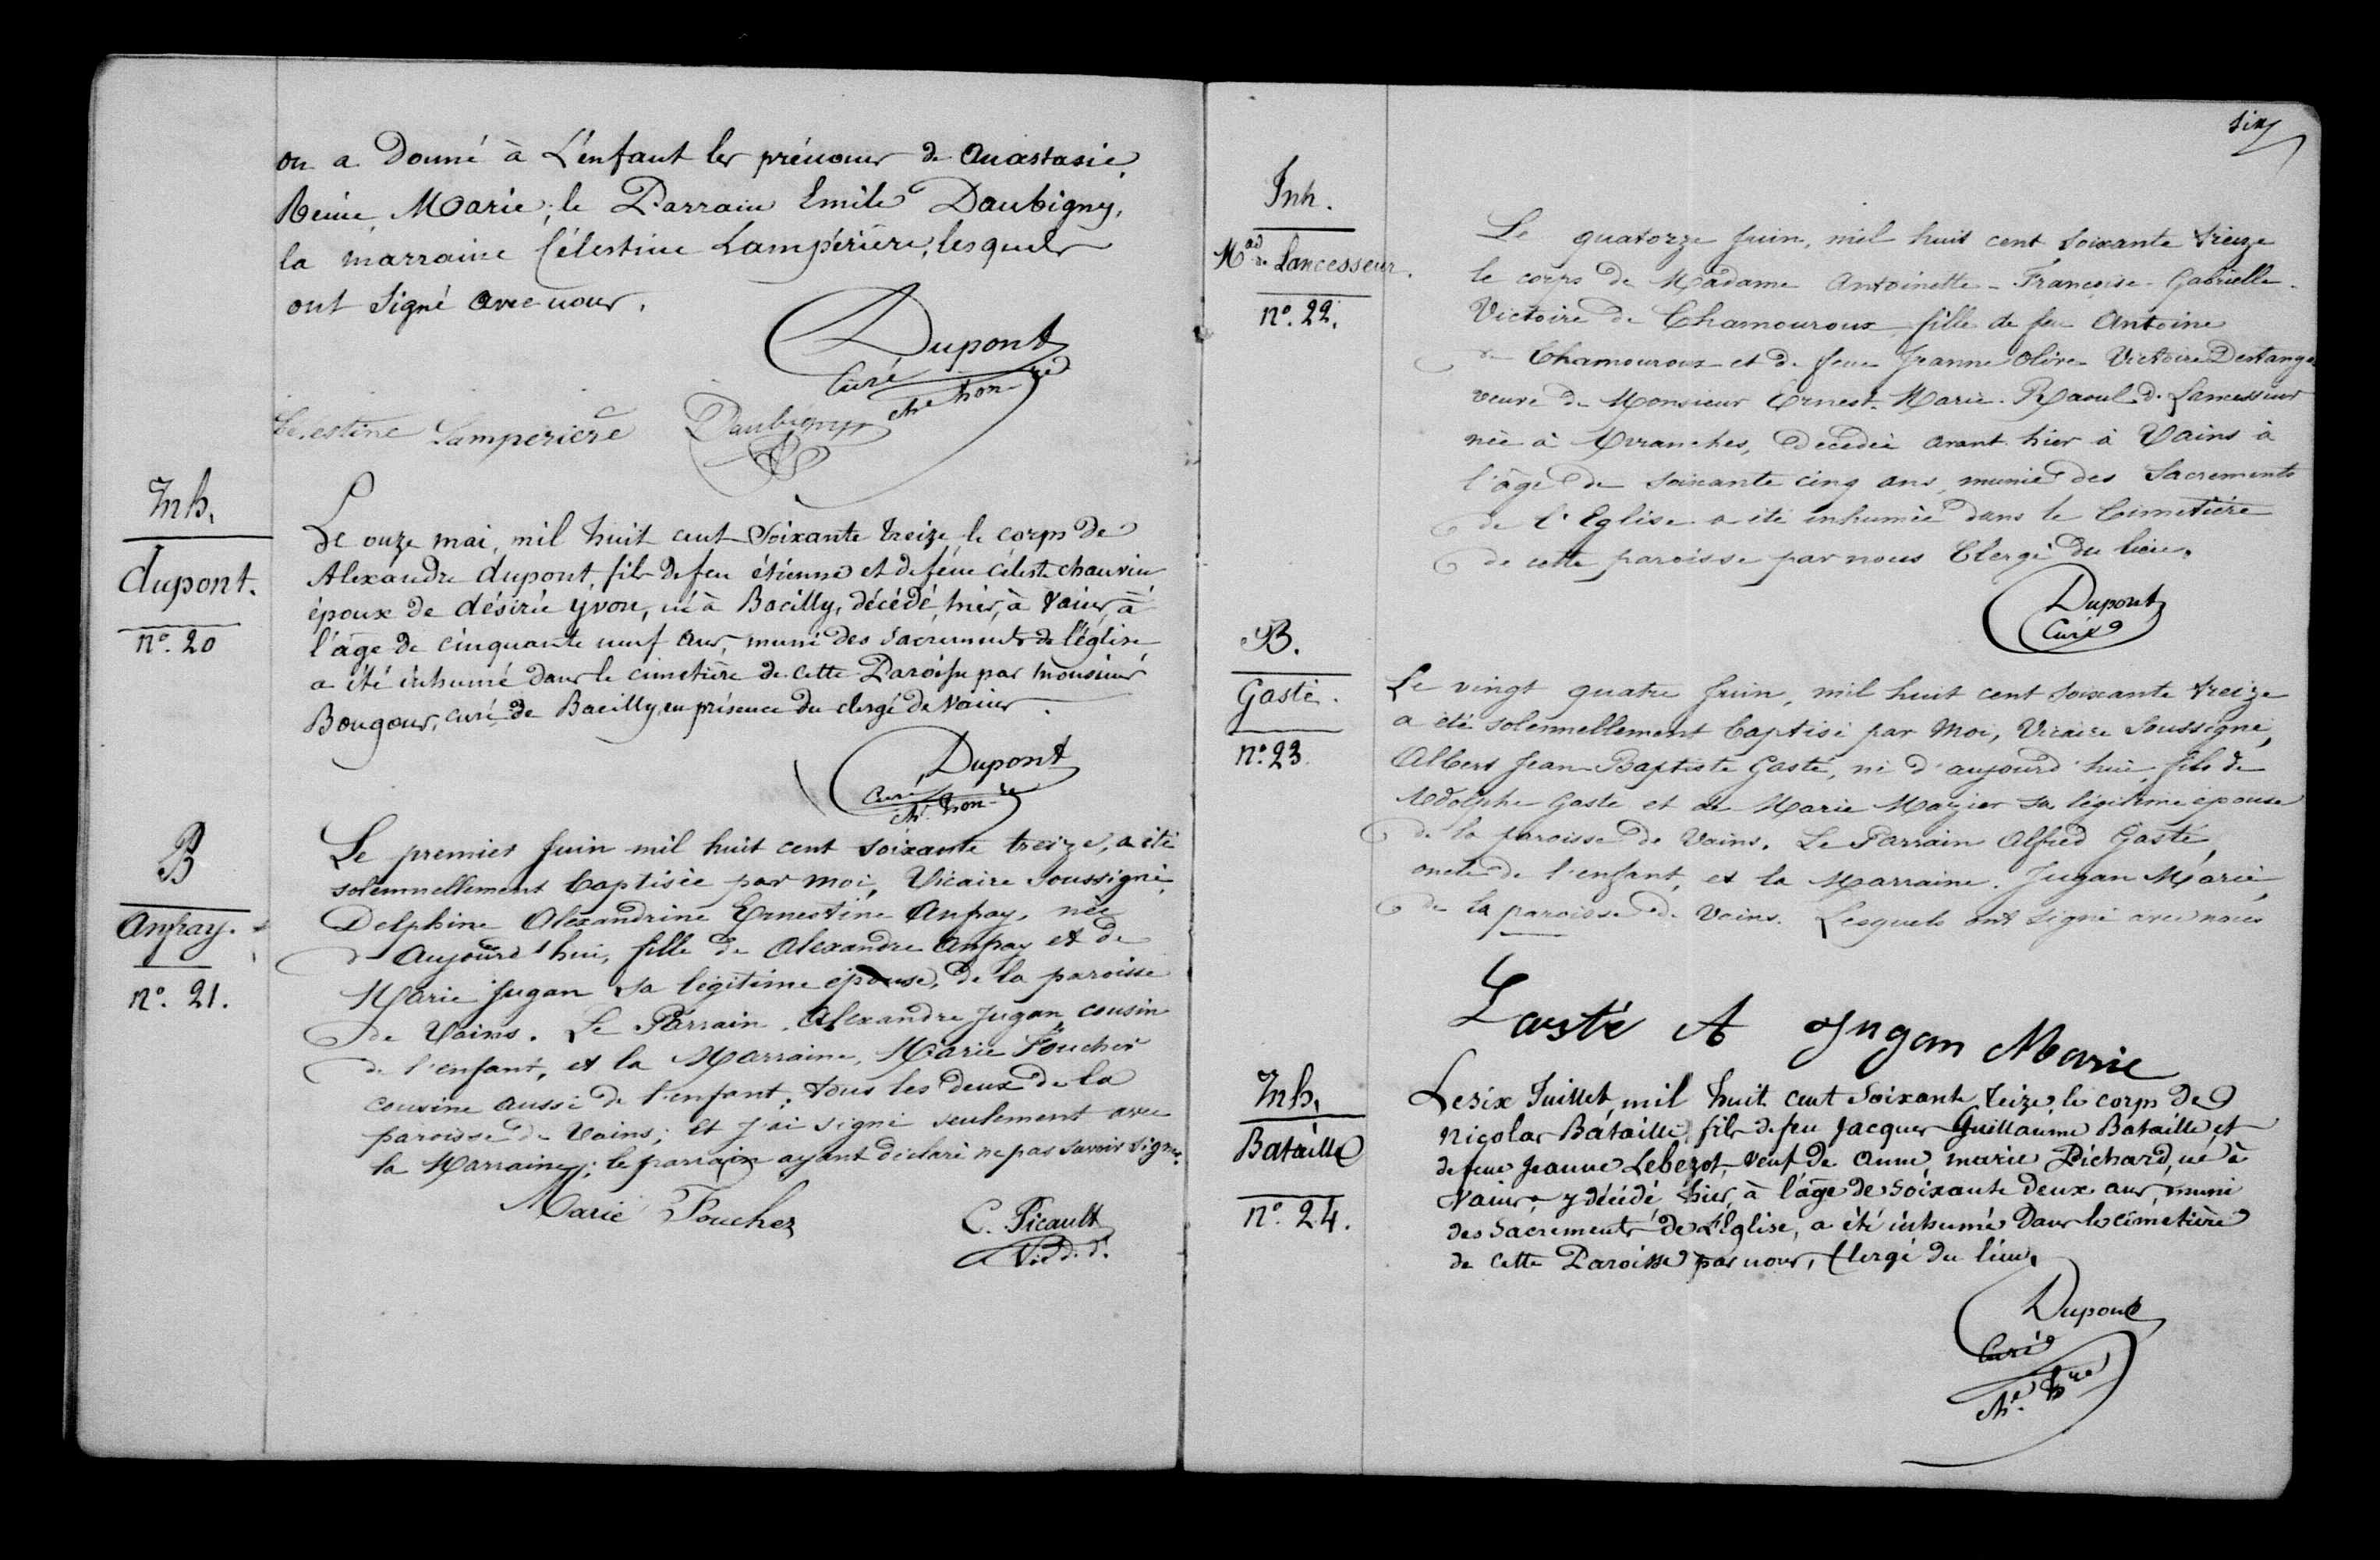 on a Donné à L'enfant les prénoms de Anastasie,
Reine, Marie; le Parrain Emile Daubigny,
la marraine Célestine Lampérière, lesquels
ont Signé avec nous.
Dupont
Curé
che hon-re
Célestine Lamperière Daubigny
Inh.
dupont.
nº. 20
Le onze mai, mil huit cent Soixante treize le corps de
Alexandre dupont, fils de feu étienne et de feue céleste chauvin
époux de désirée yvon, né à Bacilly, décédé, hier, à Vains, à
l'âge de cinquante neuf ans, muni des Sacrements de l'église,
a été inhumé dans le cimetière de cette Paroisse par Monsieur
Bougour, curé de Bacilly, en présence du clergé de Vains.
Dupont
Curé
ch. hon-re
B
Anfray.
nº. 21.
Le premier Juin mil huit cent soixante treize, a été
solennellement baptisée par moi, Vicaire Soussigné,
Delphine Alexandrine Ernestine Anfray, née
d'Aujourd'hui, fille de Alexandre Anfray et de
Marie Jugan sa légitime épouse, de la paroisse
de Vains. Le Parrain, Alexandre Jugan, cousin
de l'enfant, et la Marraine, Marie Foucher
cousine aussi de l'enfant; tous les deux de la
paroisse de Vains; et j'ai signé seulement avec
la Marraine; le parrain ayant déclaré ne pas savoir signer.
Marie Foucher C. Picault
Vic. d. d.
six
Inh.
Mad de Lancesseur.
nº. 22.
Le quatorze Juin, mil huit cent soixante treize
le corps de Madame Antoinette - Françoise - Gabrielle -
Victoire de Chamouroux fille de feu Antoine
de Chamouroux et de feue Jeanne Olive Victoire
veuve de Monsieur Ernest. Marie. Raoul de Lancesseur
née à Avranches, décédée avant hier à Vains à
l'âge de soixante cinq ans, munie des Sacrements
de l'Eglise a été inhumée dans le Cimetière
de cette paroisse par nous Clergé du lieu.
Dupont
Curé
B.
Gasté.
nº. 23.
Le vingt quatre Juin, mil huit cent soixante treize
a été solennellement baptisé par moi, Vicaire Soussigné,
Albert Jean-Baptiste Gasté, né d'aujourd'hui, fils de
Adolphe Gasté et de Marie Mazier sa légitime épouse
de la paroisse de Vains. Le Parrain Alfred Gasté,
oncle de l'enfant, et la Marraine. Jugan Marie,
de la paroisse de Vains. Lesquels ont signé avec nous
Gasté A Jugan Marie
Inh.
Bataille
nº. 24.
Le six Juillet, mil huit cent Soixante treize, le corps de
Nicolas Bataille, fils de feu Jacques Guillaume Bataille et
de feue Jeanne Lebezot, veuf de Anne, marie Pichard, né à
Vains, y décédé, hier, à l'âge de Soixante Deux ans, muni
des Sacrements de l'Eglise, a été inhumé Dans le cimetière
de cette Paroisse par nous, Clergé du lieu.
Dupont
Curé
ch. hre